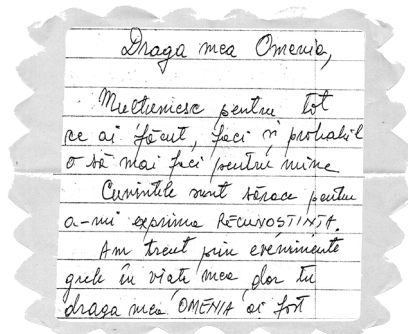 Draga mea Omenia,
Multumesc pentru tot
ce ai făcut, faci si probabil
o să mai faci pentru mine
Cuvintele sunt sărace pentru
a-mi exprima RECUNOSTINTA.
Am trecut prin evenimente
grele în viata mea, dar tu
draga mea OMENIA ai fost